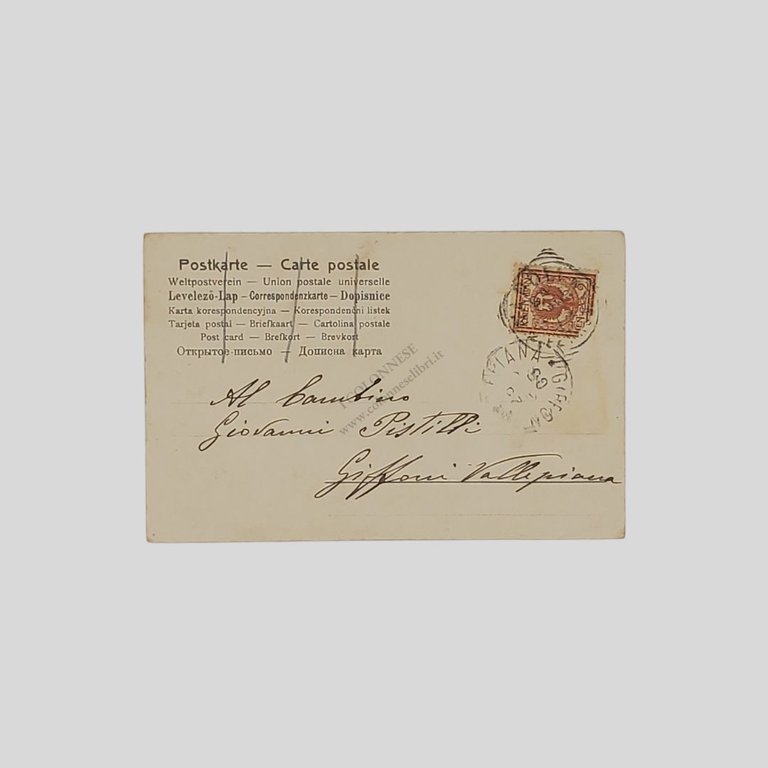 Postkarte — Carte postale
Weltpostverein — Union postale universelle
Levelezö-Lap – Correspondenzkarte – Dopisnice
Karta korespondencyjna — Korespondenční listek
Tarjeta postal — Briefkaart — Cartolina postale
Post card — Brefkort — Brevkort
Открытое письмо — Дописна карта
Al Bambino
Giovanni Pistilli
Giffoni Vallepiana
COLONNESE
www.colonneselibri.it